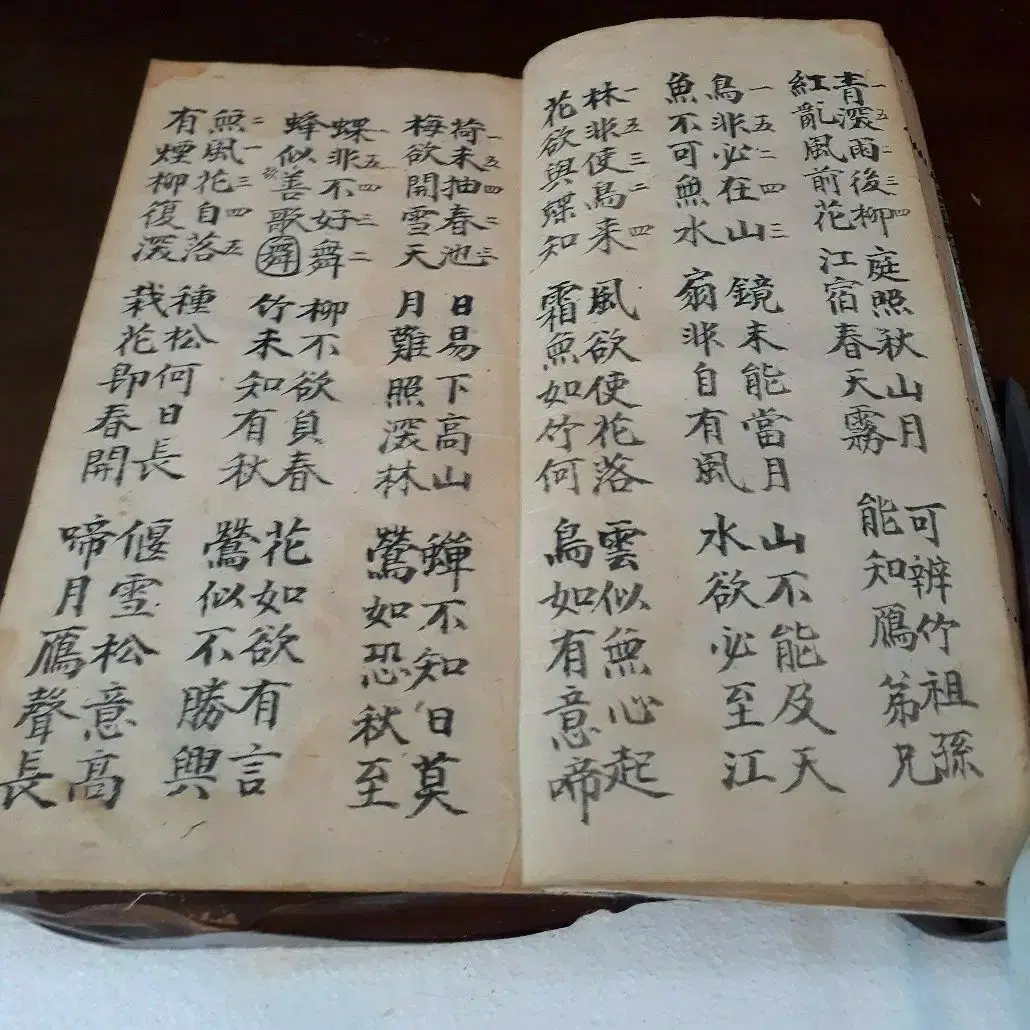 青深雨後柳 庭照秋山月 可辨竹祖孫
一五二三四
紅亂風前花 江宿春天霧 能知鴈弟兄
鳥非必在山 鏡未能當月 山不能及天
一五二四三
魚不可無水 扇非自有風 水欲必至江
林非使鳥來 風欲使花落 雲似無心起
一五三二四
花欲與蝶知 霜無如竹何 鳥如有意啼
荷未抽春池 日易下高山 蟬不知日莫
一五四二三
梅欲開雪天 月難照深林 鶯如恐秋至
蝶非不好舞 柳不欲負春 花如欲有言
一五四三二
蜂似善歌舞 竹未知有秋 鶯似不勝興
無風花自落 種松何日長 偃雪松意高
二一三四五
有煙柳復深 栽花即春開 啼月鴈聲長